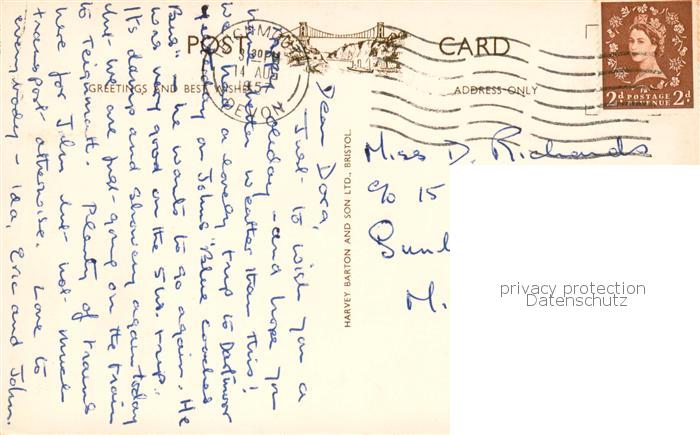 POST CARD
GREETINGS AND BEST WISHES
ADDRESS ONLY
14 AU
DEVON
2d POSTAGE REVENUE 2d
HARVEY BARTON AND SON LTD., BRISTOL
Dear Dora,
Just to wish you a
holiday - and hope you
weather than this!
a lovely trip to Dartmoor
on Johns "Blue coaches
Bus" - he wants to go again. He
was very good on the 5 hrs. trip.
Its damp and showery again today
but we are just going on the train
to Teignmouth. Plenty of trains
here for John but not much
transport otherwise. Love to
everybody - Ida, Eric and John.
Miss D. Richards
c/o 15
M.
privacy protection
Datenschutz